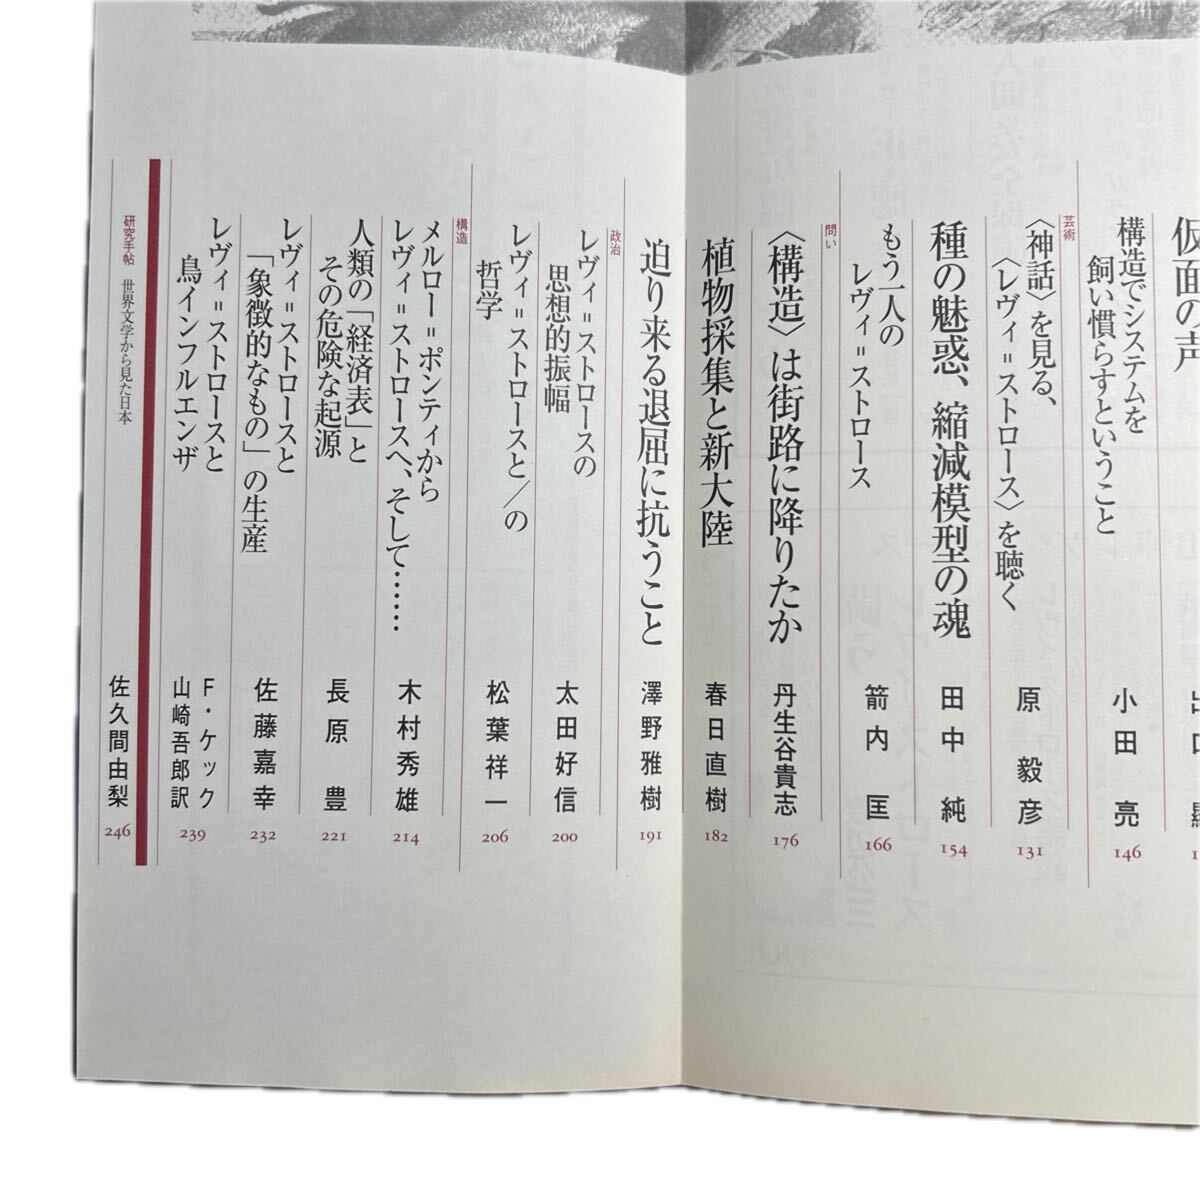 仮面の声
出口 顯
構造でシステムを
飼い慣らすということ
小田 亮
146
芸術
〈神話〉を見る、
〈レヴィ＝ストロース〉を聴く
原 毅彦
131
種の魅惑、縮減模型の魂
田中 純
154
もう一人の
レヴィ＝ストロース
箭内 匡
166
問い
〈構造〉は街路に降りたか
丹生谷貴志
176
植物採集と新大陸
春日直樹
182
迫り来る退屈に抗うこと
澤野雅樹
191
政治
レヴィ＝ストロースの
思想的振幅
太田好信
200
レヴィ＝ストロースと／の
哲学
松葉祥一
206
構造
メルロー＝ポンティから
レヴィ＝ストロースへ、そして……
木村秀雄
214
人類の「経済表」と
その危険な起源
長原 豊
221
レヴィ＝ストロースと
「象徴的なもの」の生産
佐藤嘉幸
232
レヴィ＝ストロースと
鳥インフルエンザ
F・ケック
山崎吾郎訳
239
研究手帖 世界文学から見た日本
佐久間由梨
246